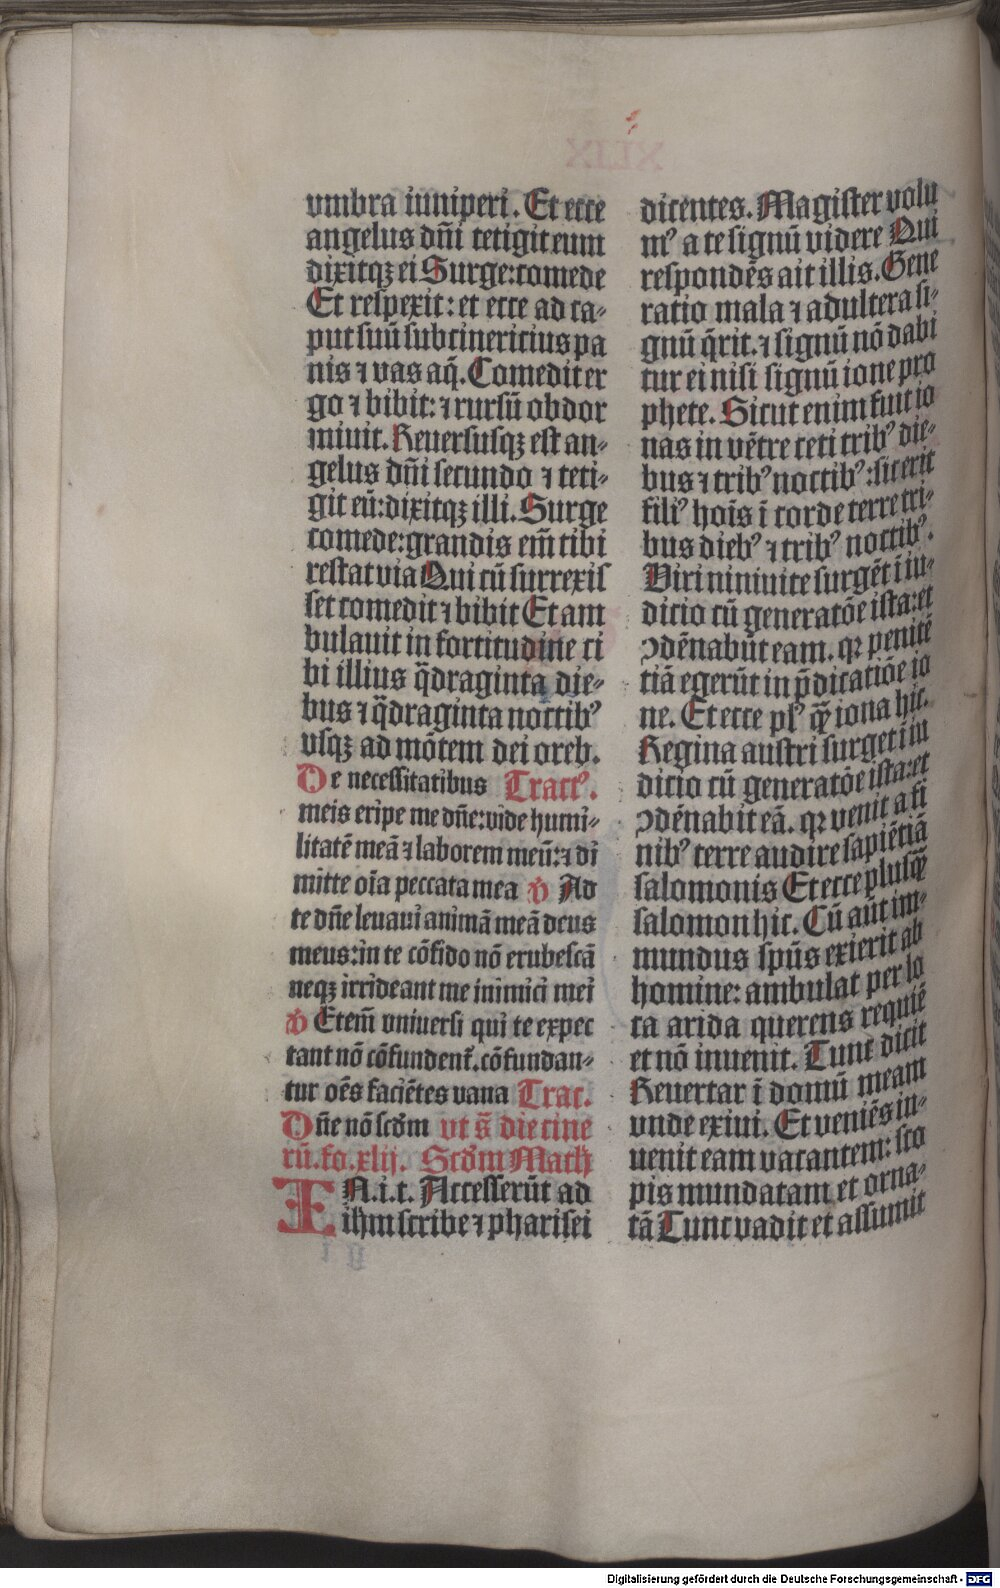 vmbra iuniperi. Et ecce
angelus dñi tetigit eum
dixitqꝫ ei Surge: comede
Et respexit: et ecce ad ca-
put suū subcinericius pa
nis ⁊ vas aq̄. Comedit er
go ⁊ bibit: ⁊ rursū obdor
miuit. Reuersusqꝫ est an-
gelus dñi secundo ⁊ teti-
git eū: dixitqꝫ illi. Surge
comede: grandis em̄ tibi
restat via Qui cū surrexis
set comedit ⁊ bibit Et am
bulauit in fortitudine ci
bi illius q̄draginta die-
bus ⁊ q̄draginta noctibꝰ
vsqꝫ ad mōtem dei oreb.
De necessitatibus Tractꝰ.
meis eripe me dñe: vide humi-
litatē meā ⁊ laborem meū: ⁊ di
mitte oīa peccata mea v̇ Ad
te dñe leuaui animā meā deus
meus: in te cōfido nō erubescā
neqꝫ irrideant me inimici mei
v̇ Etem̄ vniuersi qui te expec
tant nō cōfundent̄. cōfundan-
tur oēs faciētes vana Trac.
Dñe nō scd̄m vt s̄ die cine
rū. fo. xlij. Scd̄m Math
IN. i. t. Accesserūt ad
ihm scribe ⁊ pharisei
dicentes. Magister volu
mꝰ a te signū videre Qui
respondēs ait illis. Gene
ratio mala ⁊ adultera si-
gnū q̄rit. ⁊ signū nō dabi
tur ei nisi signū ione pro
phete. Sicut enim fuit io
nas in vētre ceti tribꝰ die-
bus ⁊ tribꝰ noctibꝰ: sic erit
filiꝰ hoīs ī corde terre tri-
bus diebꝰ ⁊ tribꝰ noctibꝰ.
Viri niniuite surgēt ī iu-
dicio cū generatōe ista: et
ꝯdēnabūt eam. qꝛ penitē
tiā egerūt in p̄dicatiōe io
ne. Et ecce plꝰ q̄ꝫ iona hic.
Regina austri surget ī iu
dicio cū generatōe ista: et
ꝯdēnabit eā. qꝛ venit a fi
nibꝰ terre audire sapiētiā
salomonis Et ecce plusq̄ꝫ
salomon hic. Cū aūt im-
mundus spūs exierit ab
homine: ambulat per lo
ca arida querens requiē
et nō inuenit. Tunc dicit
Reuertar ī domū meam
vnde exiui. Et veniēs in-
uenit eam vacantem: sco
pis mundatam et orna-
tā Tunc vadit et assumit
Digitalisierung gefördert durch die Deutsche Forschungsgemeinschaft - DFG